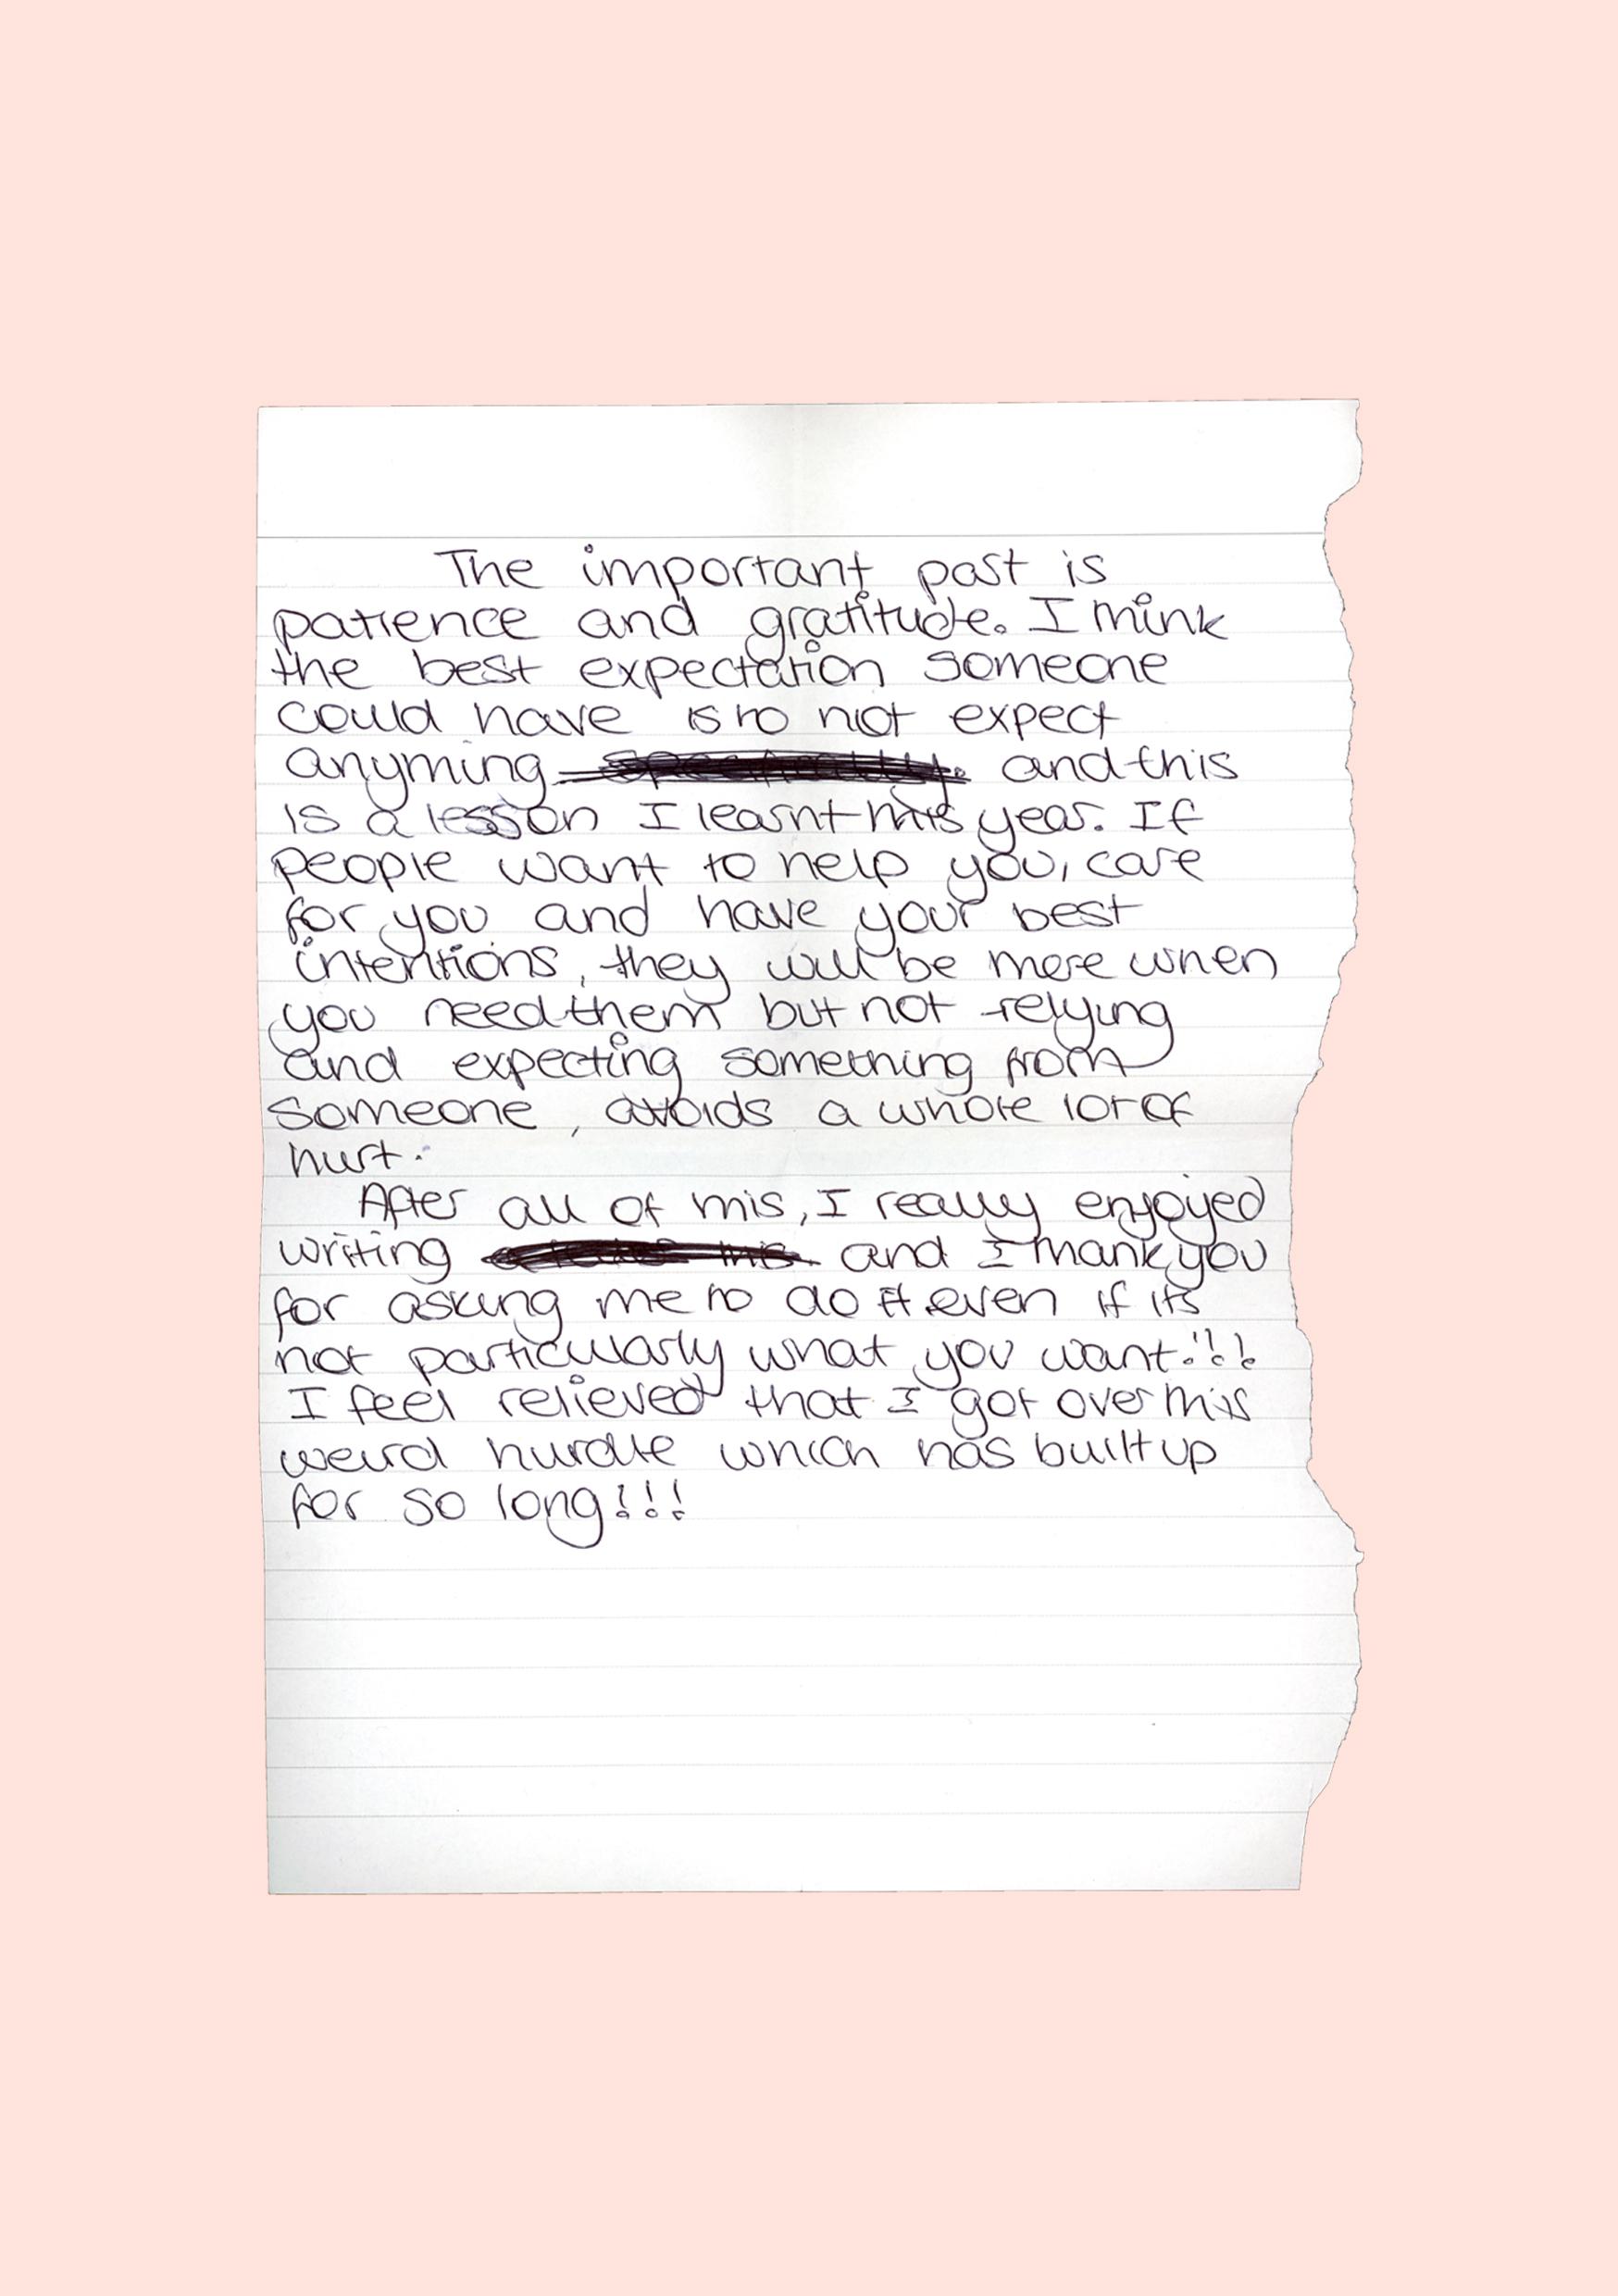 The important part is
patience and gratitude. I think
the best expectation someone
could have is to not expect
anything and this
is a lesson I learnt this year. If
people want to help you, care
for you and have your best
intentions, they will be there when
you need them but not relying
and expecting something from
someone, avoids a whole lot of
hurt.
After all of this, I really enjoyed
writing and I thank you
for asking me to do it even if its
not particularly what you want!!!
I feel relieved that I got over this
weird hurdle which has built up
for so long!!!